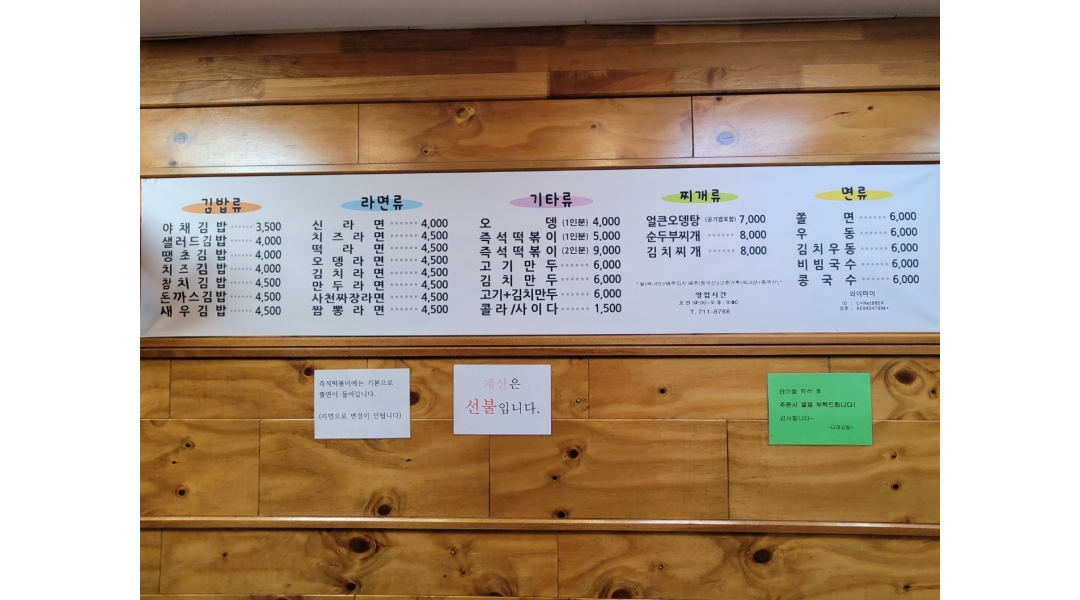 김밥류
야채김밥 ····· 3,500
샐러드김밥 ····· 4,000
땡초김밥 ····· 4,000
치즈김밥 ····· 4,000
참치김밥 ····· 4,500
돈까스김밥 ····· 4,500
새우김밥 ····· 4,500
라면류
신라면 ······ 4,000
치즈라면 ······ 4,500
떡라면 ······ 4,500
오뎅라면 ······ 4,500
김치라면 ······ 4,500
만두라면 ······ 4,500
사천짜장라면 ······ 4,500
짬뽕라면 ······ 4,500
기타류
오뎅 (1인분) 4,000
즉석떡볶이 (1인분) 5,000
즉석떡볶이 (2인분) 9,000
고기만두 ······ 6,000
김치만두 ······ 6,000
고기+김치만두 ······ 6,000
콜라/사이다 ······ 1,500
찌개류
얼큰오뎅탕 (공기밥포함) 7,000
순두부찌개 ······ 8,000
김치찌개 ······ 8,000
영업시간
T. 711-8766
면류
쫄면 ······ 6,000
우동 ······ 6,000
김치우동 ······ 6,000
비빔국수 ······ 6,000
콩국수 ······ 6,000
와이파이
즉석떡볶이에는 기본으로
쫄면이 들어갑니다.
(라면으로 변경이 안됩니다)
계산은
선불입니다.
테이블 착석 후
주문시 결제 부탁드립니다!
감사합니다~